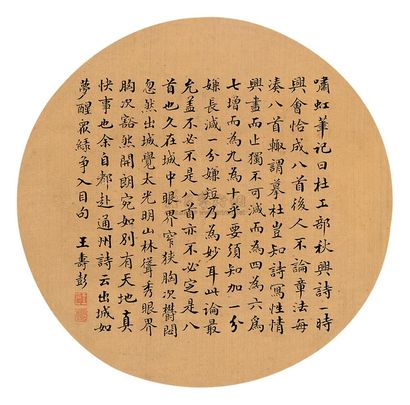 嘯虹筆記曰杜工部秋興詩一時
興會恰成八首後人不論章法每
湊八首輒謂摹杜豈知詩寫性情
興盡而止獨不可減而為四為六為
七增而為九為十乎要須知加一分
嫌長減一分嫌短乃為妙耳此論最
允蓋不必不是八首亦不必定是八
首也久在城中眼界窄狹胸次欝悶
忽然出城覺太光明山林聳秀眼界
胸次豁然開朗宛如別有天地真
快事也余自都赴通州詩云出城如
夢醒眾綠爭入目句
王壽彭